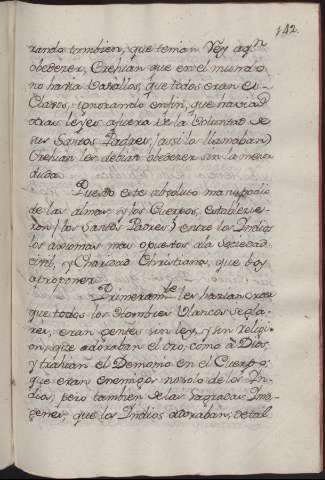 142.
rando tambien, que tenian Rey á qn
obedecer, Crehian que en el mundo
no havia Vasallos, que todos eran es-
clavos, ignorando en fin, que havia
otras leyes afuera de la Voluntad de
sus Santos Padres, (assi lo llamaban)
Crehian les debian obedecer sin la menor
duda.
Puesto este absoluto manipodio
de las almas y los Cuerpos, establecie-
ron (los Santos Padres) entre los Indios
los axiomas mas opuestos ala Sociedad
civil, y Charidad Christiana, que boy
a proponer.
Primeramte. les hacian creer
que todos los Hombres Blancos segla-
res, eran gentes sin ley, y sin religi-
on, que adoraban el oro, como á Dios,
y trahian el Demonio en el Cuerpo;
que eran enemigos no solo de los In-
dios, pero tambien de las sagradas Ima-
genes, que los Indios adoraban; de tal